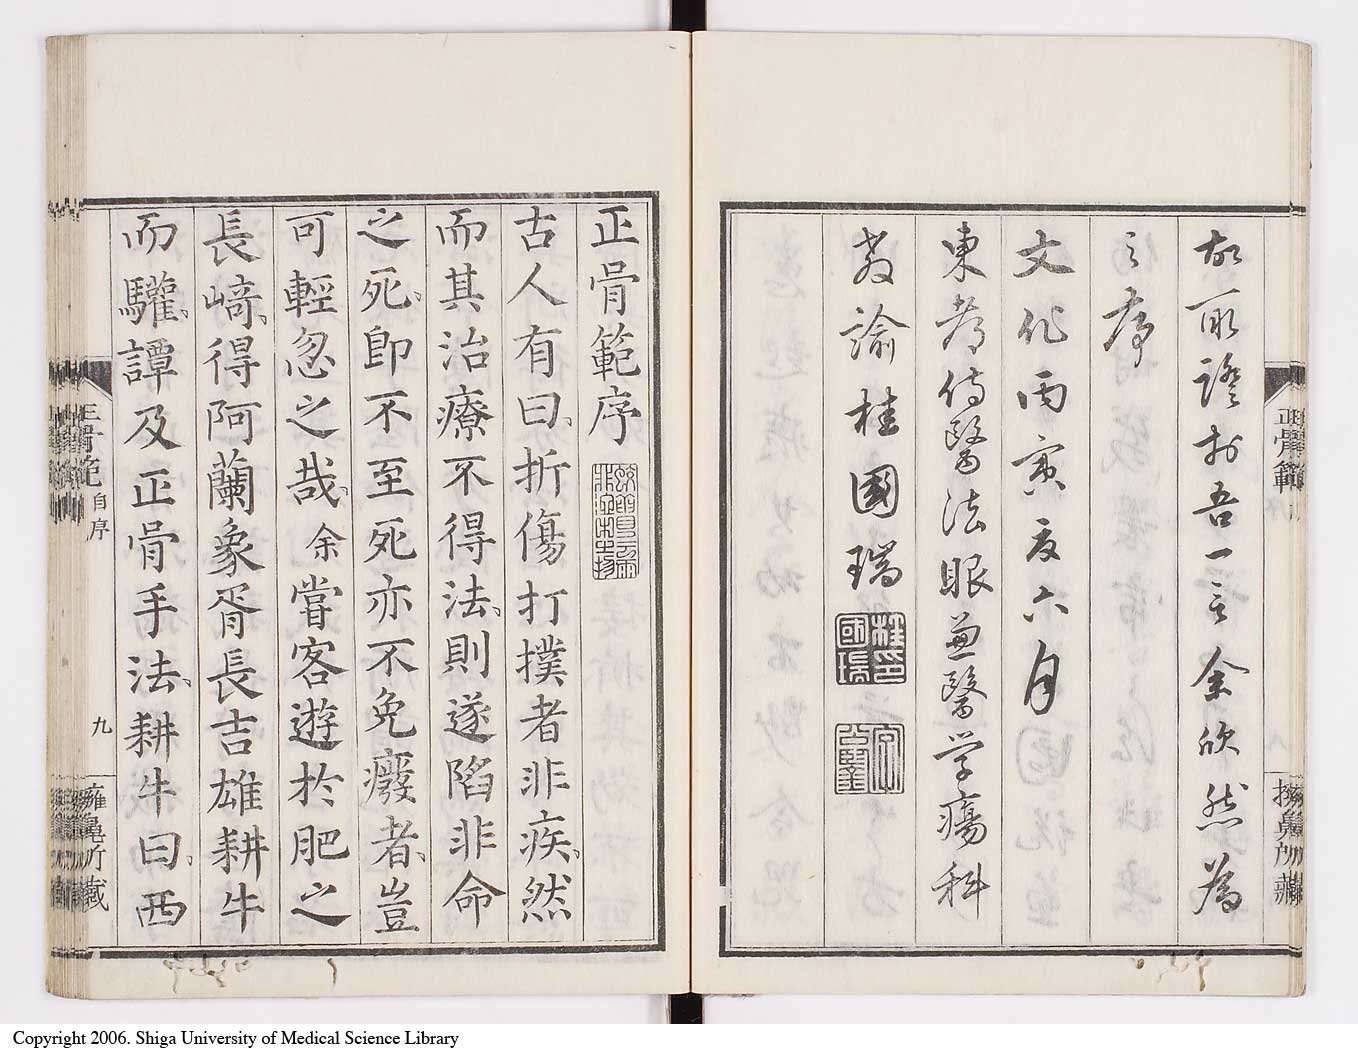 故取證於吾一言余欣然為
之序
文化丙寅夏六月
東都侍醫法眼兼醫学瘍科
教諭桂國瑞
桂印國瑞
正骨範
正骨範序
古人有曰折傷打撲者非疾然
而其治療不得法則遂陷非命
之死即不至死亦不免癈者豈
可輕忽之哉余嘗客遊於肥之
長﨑得阿蘭象胥長吉雄耕牛
而驩譚及正骨手法耕牛曰西
正骨範
自序
九
擁鼻所藏
Copyright 2006. Shiga University of Medical Science Library